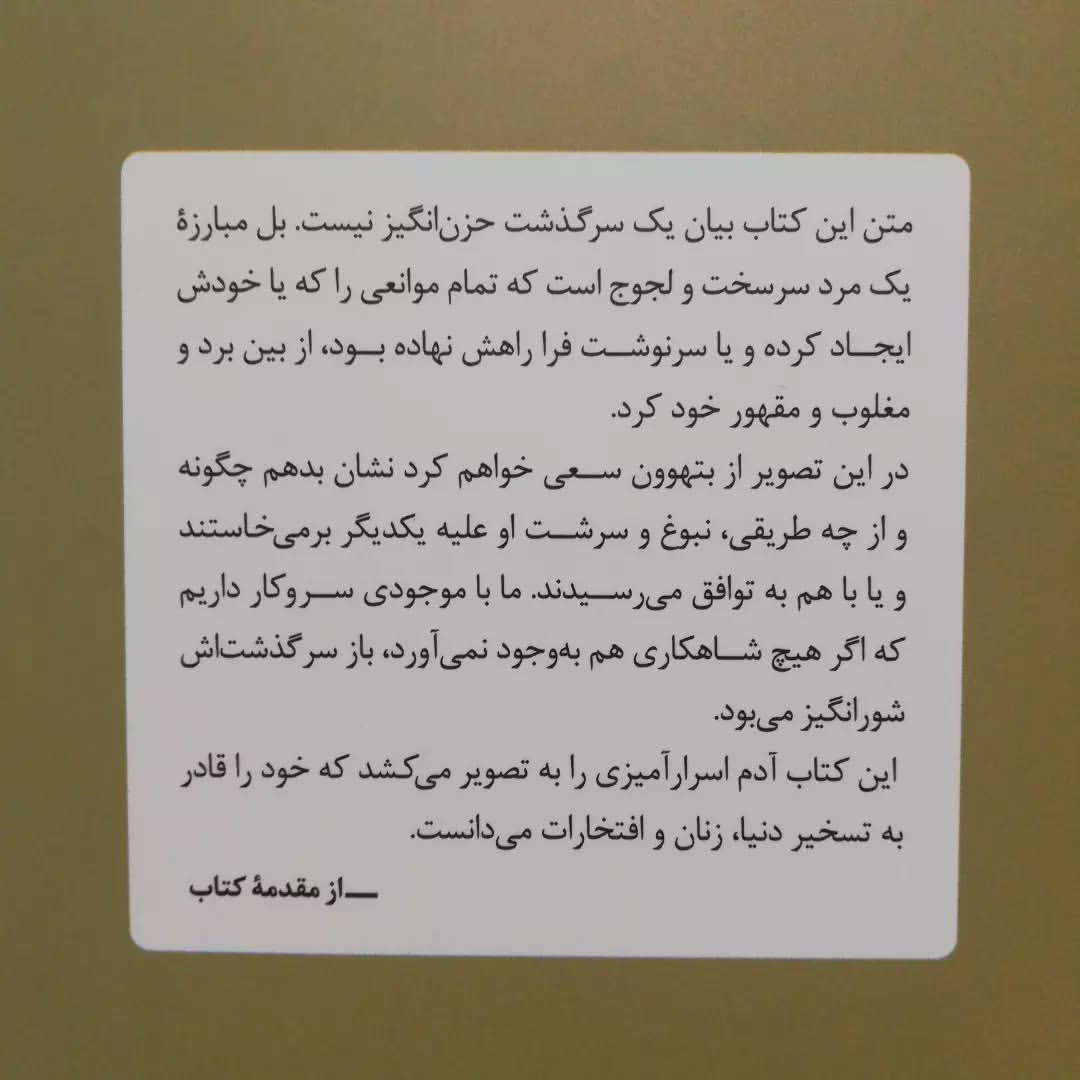 متن این کتاب بیان یک سرگذشت حزن‌انگیز نیست. بل مبارزهٔ
یک مرد سرسخت و لجوج است که تمام موانعی را که یا خودش
ایجاد کرده و یا سرنوشت فرا راهش نهاده بود، از بین برد و
مغلوب و مقهور خود کرد.
در این تصویر از بتهوون سعی خواهم کرد نشان بدهم چگونه
و از چه طریقی، نبوغ و سرشت او علیه یکدیگر برمی‌خاستند
و یا با هم به توافق می‌رسیدند. ما با موجودی سروکار داریم
که اگر هیچ شاهکاری هم به‌وجود نمی‌آورد، باز سرگذشت‌اش
شورانگیز می‌بود.
این کتاب آدم اسرارآمیزی را به تصویر می‌کشد که خود را قادر
به تسخیر دنیا، زنان و افتخارات می‌دانست.
ـــ از مقدمهٔ کتاب